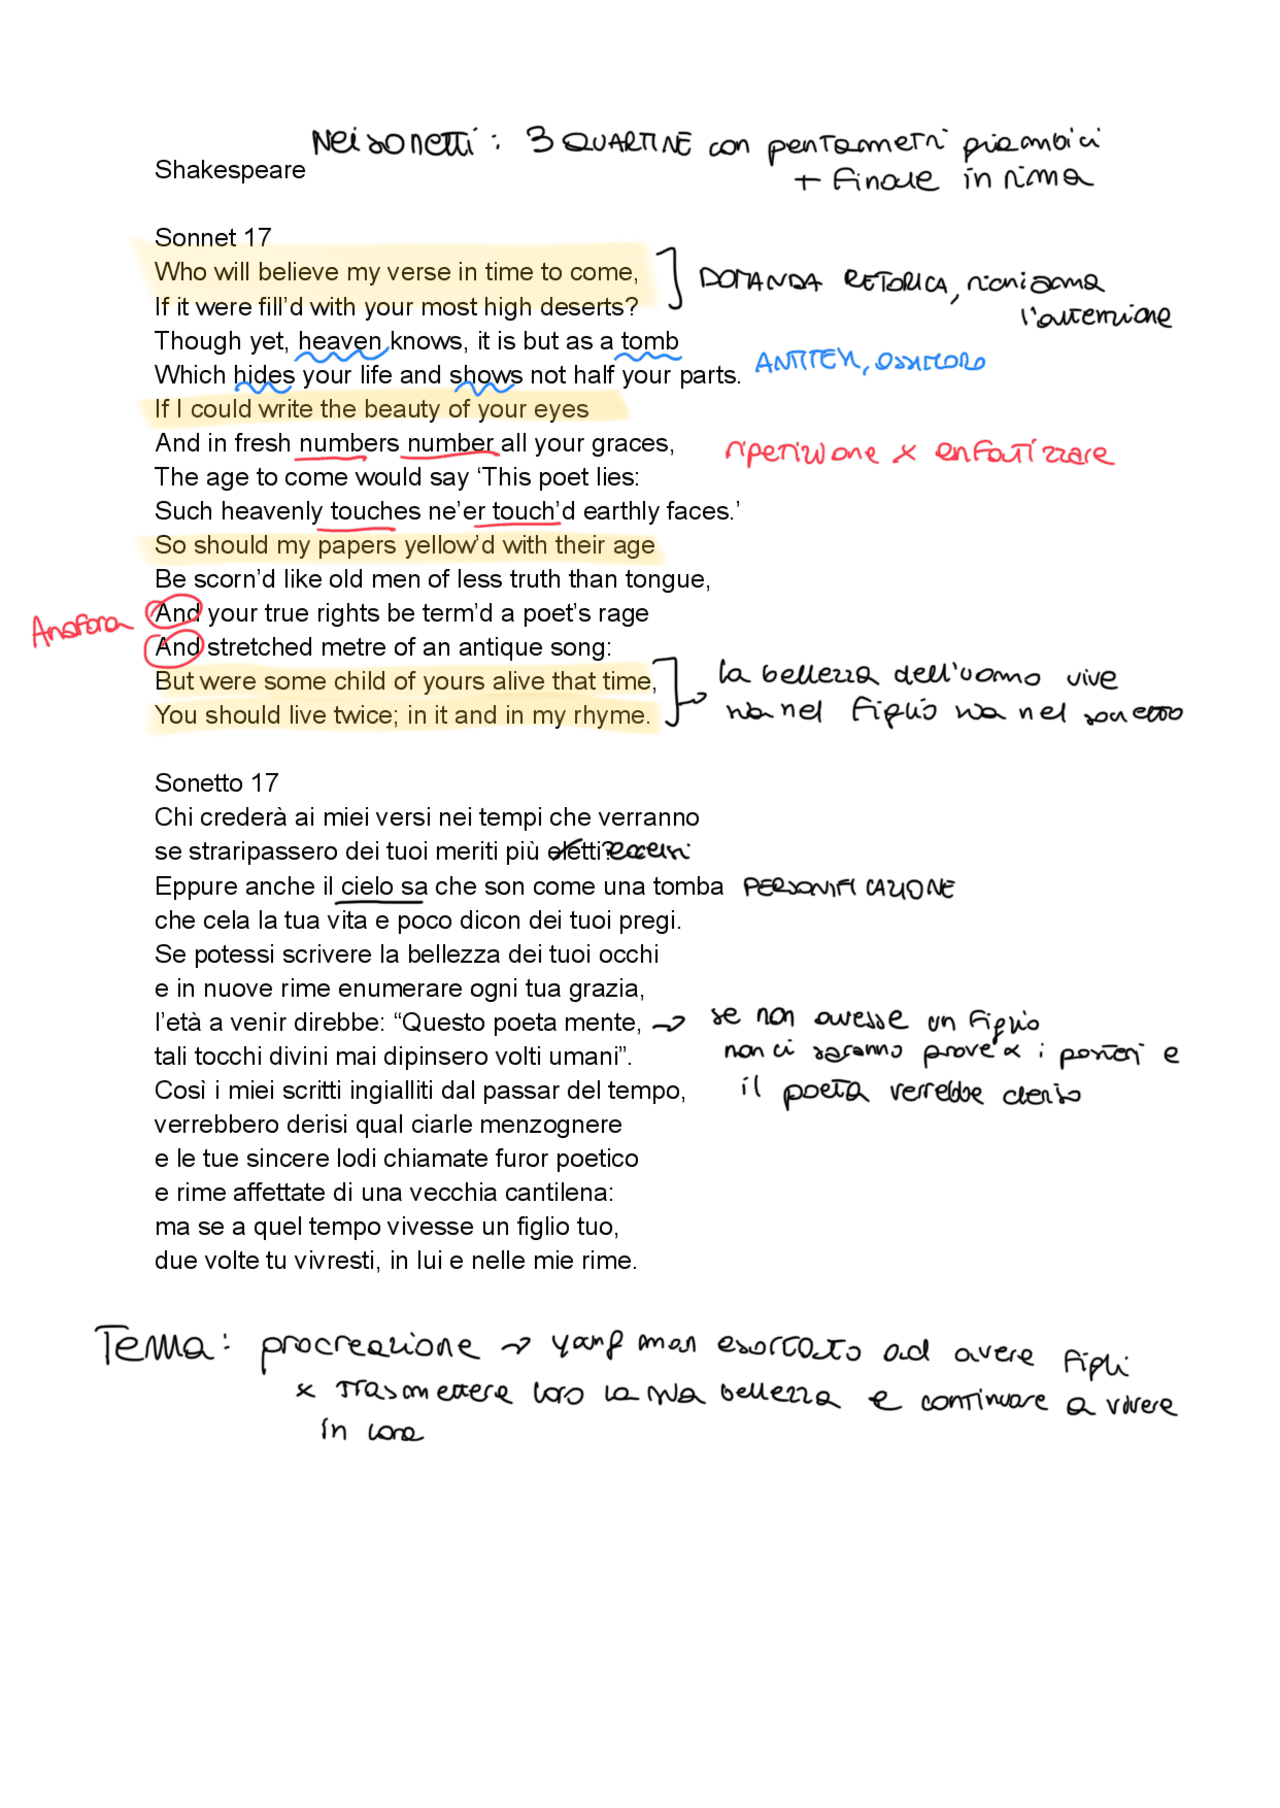 Nei sonetti: 3 QUARTINE con pentametri giambici
Shakespeare
+ finale in rima
Sonnet 17
Who will believe my verse in time to come,
If it were fill’d with your most high deserts?
DOMANDA RETORICA, richiama
l'attenzione
Though yet, heaven knows, it is but as a tomb
Which hides your life and shows not half your parts.
ANTITESI, OSSIMORO
If I could write the beauty of your eyes
And in fresh numbers number all your graces,
ripetizione x enfatizzare
The age to come would say ‘This poet lies:
Such heavenly touches ne’er touch’d earthly faces.’
So should my papers yellow’d with their age
Be scorn’d like old men of less truth than tongue,
Anafora
And your true rights be term’d a poet’s rage
And stretched metre of an antique song:
But were some child of yours alive that time,
You should live twice; in it and in my rhyme.
la bellezza dell'uomo vive
sia nel figlio sia nel sonetto
Sonetto 17
Chi crederà ai miei versi nei tempi che verranno
se straripassero dei tuoi meriti più eletti? eccelsi
Eppure anche il cielo sa che son come una tomba PERSONIFICAZIONE
che cela la tua vita e poco dicon dei tuoi pregi.
Se potessi scrivere la bellezza dei tuoi occhi
e in nuove rime enumerare ogni tua grazia,
l’età a venir direbbe: “Questo poeta mente,
tali tocchi divini mai dipinsero volti umani”.
→ se non avesse un figlio
non ci saranno prove x i posteri e
il poeta verrebbe deriso
Così i miei scritti ingialliti dal passar del tempo,
verrebbero derisi qual ciarle menzognere
e le tue sincere lodi chiamate furor poetico
e rime affettate di una vecchia cantilena:
ma se a quel tempo vivesse un figlio tuo,
due volte tu vivresti, in lui e nelle mie rime.
Tema: procreazione → yang man esortato ad avere figli
x trasmettere loro la sua bellezza e continuare a vivere
in loro